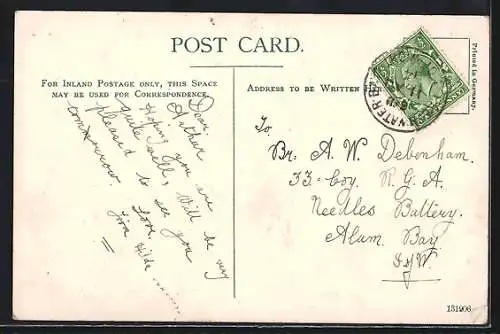 POST CARD.
FOR INLAND POSTAGE ONLY, THIS SPACE
MAY BE USED FOR CORRESPONDENCE.
ADDRESS TO BE WRITTEN HERE
Printed in Germany.
Dear
Arthur
Hoping you are
quite well, Will be very
pleased to see you
tomorrow.
Love,
from Hilda
To
Br. A. W. Debenham.
33 Coy. R. G. A.
Needles Battery.
Alum Bay
I of W.
131906